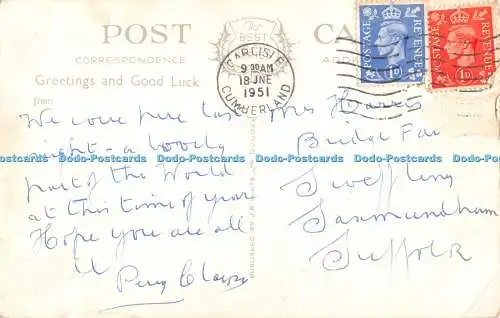 POST CARD
The BEST
CORRESPONDENCE
ADDRESS
Greetings and Good Luck
from
CARLISLE
9 AM
18 JNE
1951
CUMBERLAND
POSTAGE REVENUE
1D
POSTAGE REVENUE
1D
We came here last
night - a lovely
part of the World
at this time of year
Hope you are all
Percy
Mrs Harris
Bridge Far
Sweffling
Saxmundham
Suffolk
Dodo-Postcards Dodo-Postcards Dodo-Postcards Dodo-Postcards Dodo-Postcards Dodo-Postcards